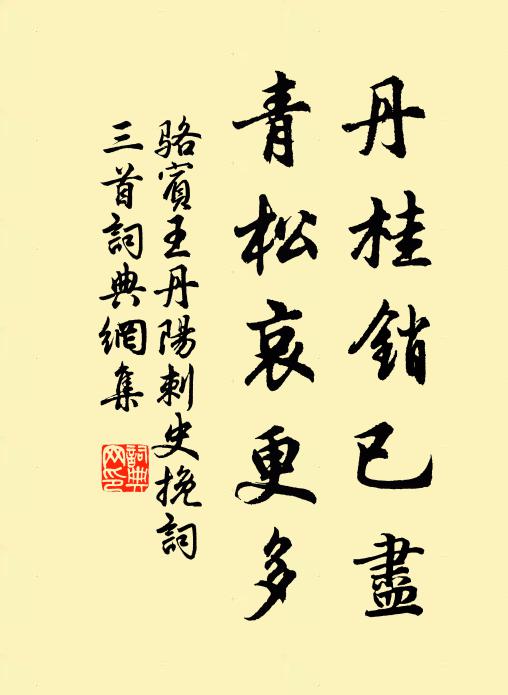 丹桂銷已盡
青松哀更多
駱賓王丹陽刺史挽詞
三首詞典網集
詞典
网印